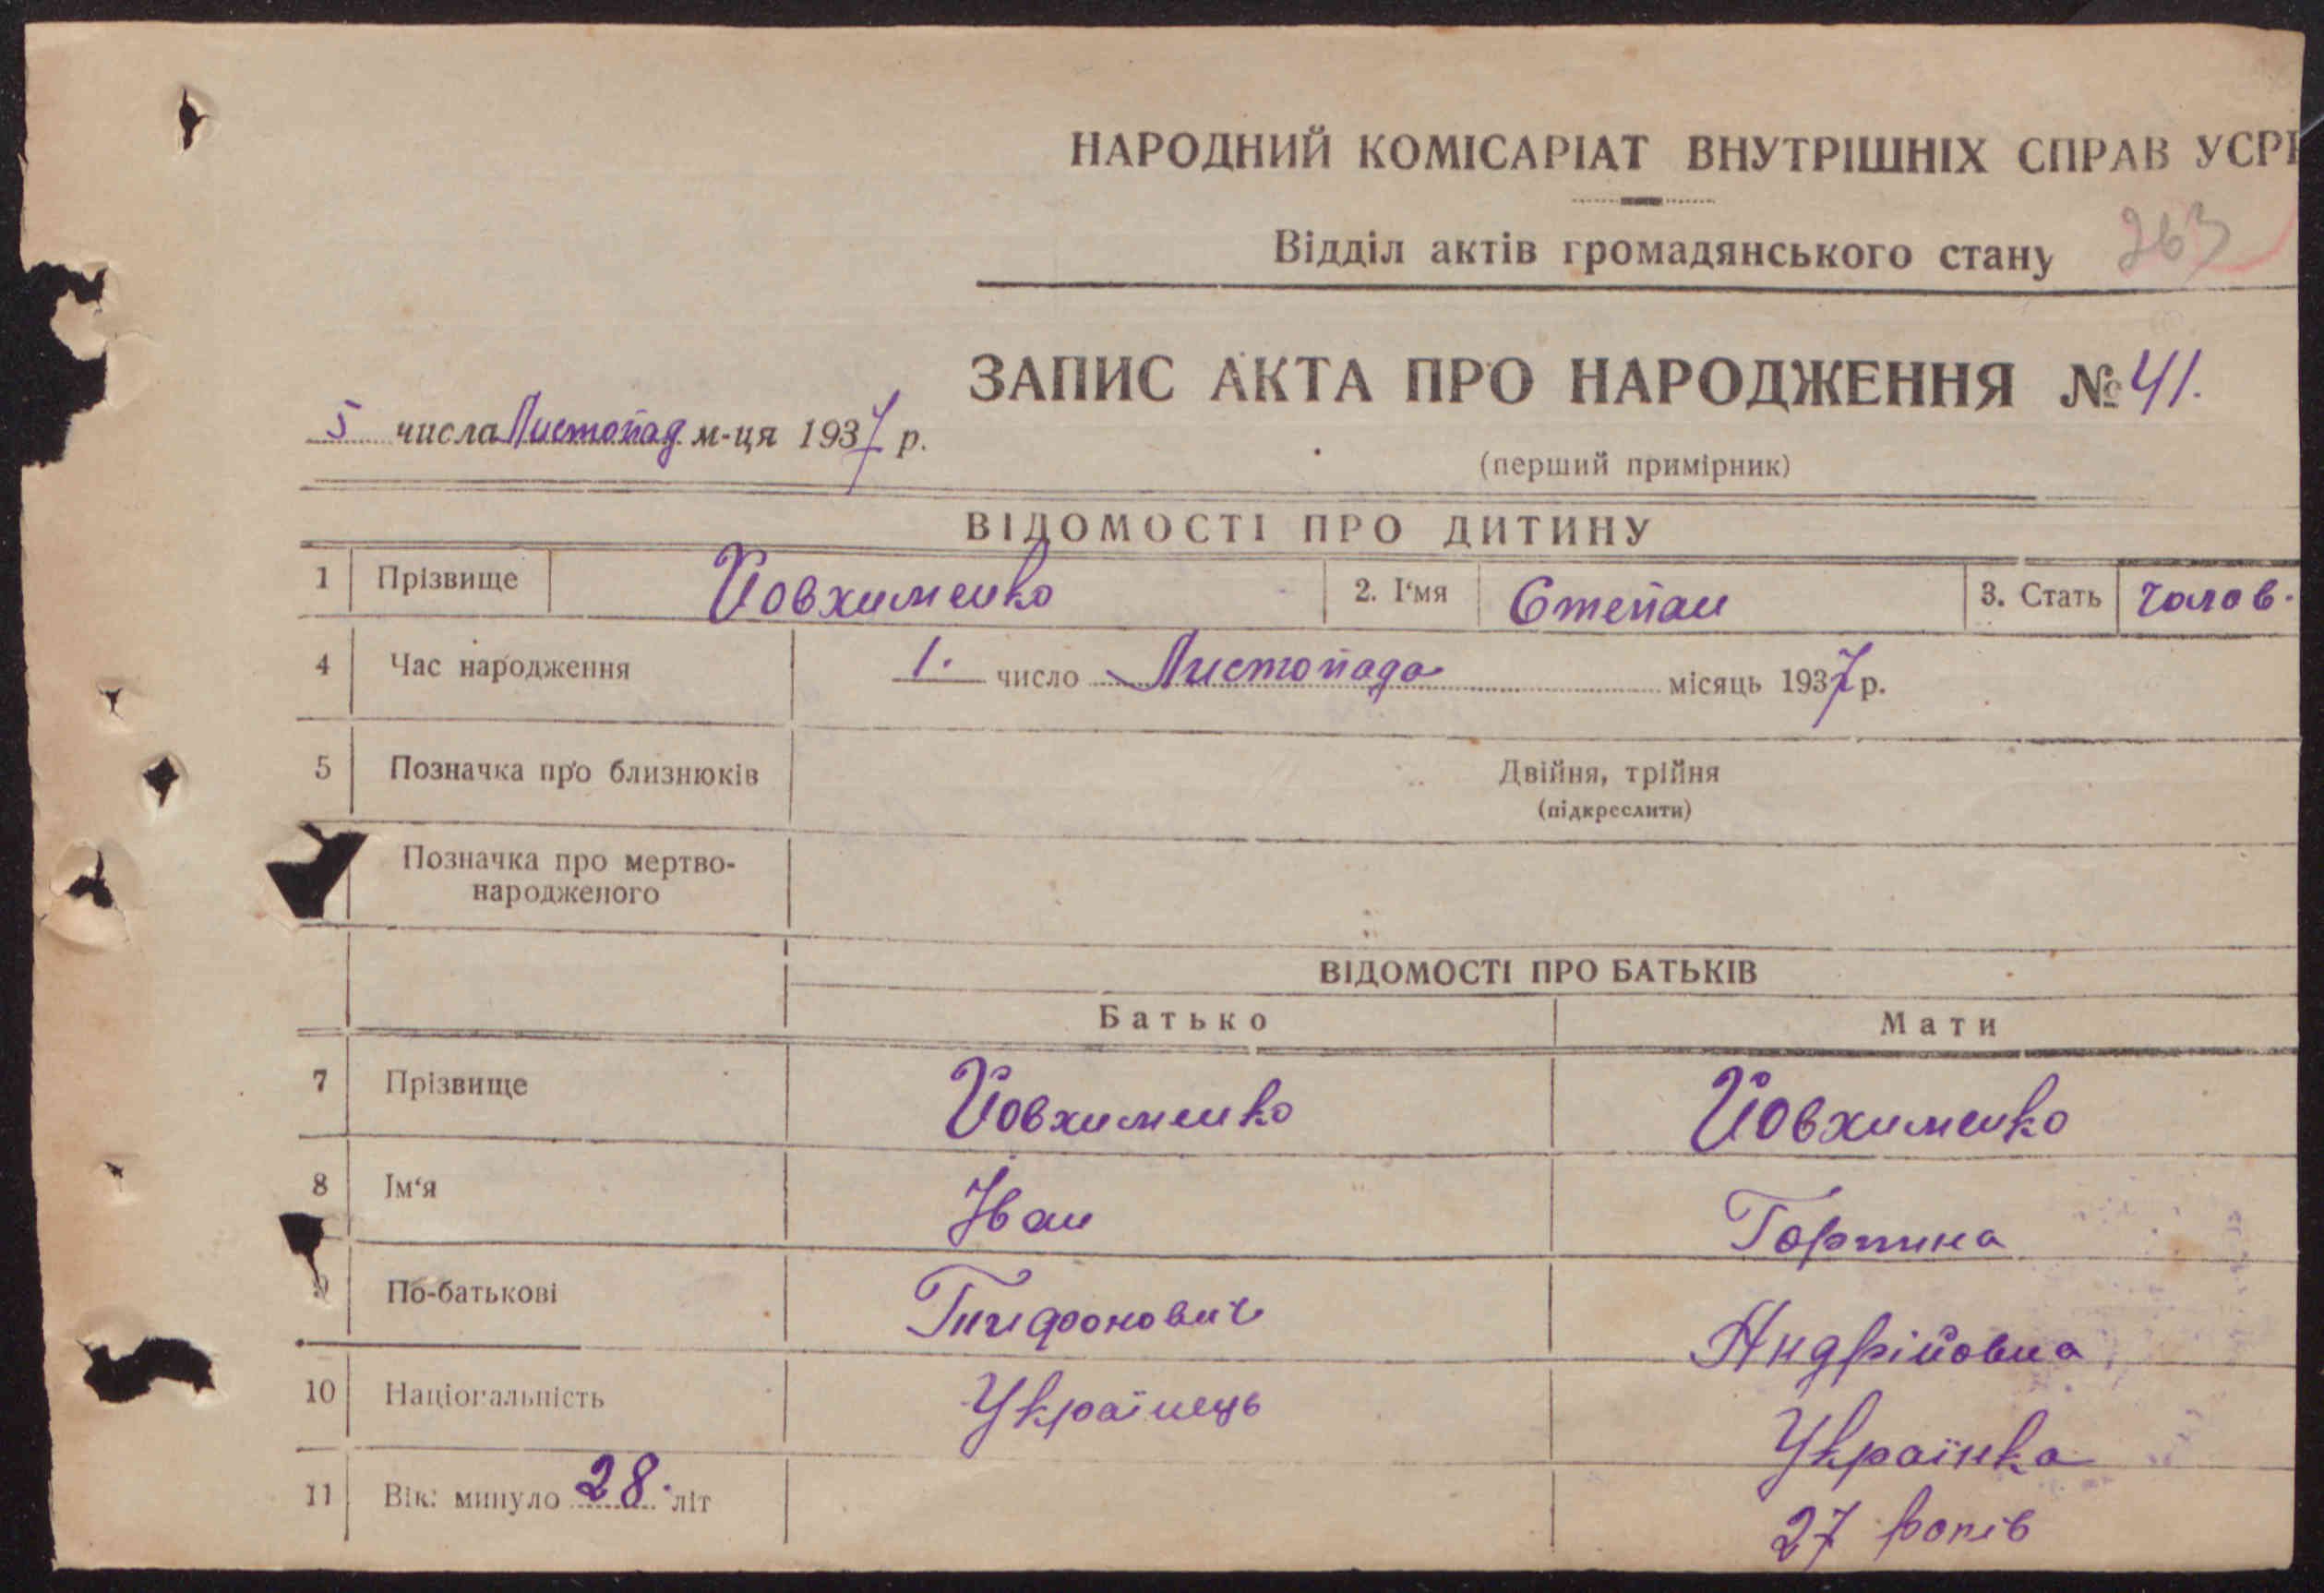 НАРОДНИЙ КОМІСАРІАТ ВНУТРІШНІХ СПРАВ УСРР
Відділ актів громадянського стану
263
ЗАПИС АКТА ПРО НАРОДЖЕННЯ № 41.
5 числа Листопад м-ця 1937 р.
(перший примірник)
ВІДОМОСТІ ПРО ДИТИНУ
1 Прізвище Йовхименко 2. І'мя Степан 3. Стать Чолов.
4 Час народження 1. число Листопада місяць 1937 р.
5 Позначка про близнюків Двійня, трійня
(підкреслити)
Позначка про мертво-
народженого
ВІДОМОСТІ ПРО БАТЬКІВ
Батько Мати
7 Прізвище Йовхименко Йовхименко
8 Ім'я Іван Горпина
9 По-батькові Андрійовна
10 Національність Українець Українка
11 Вік: минуло 28. літ 27 років